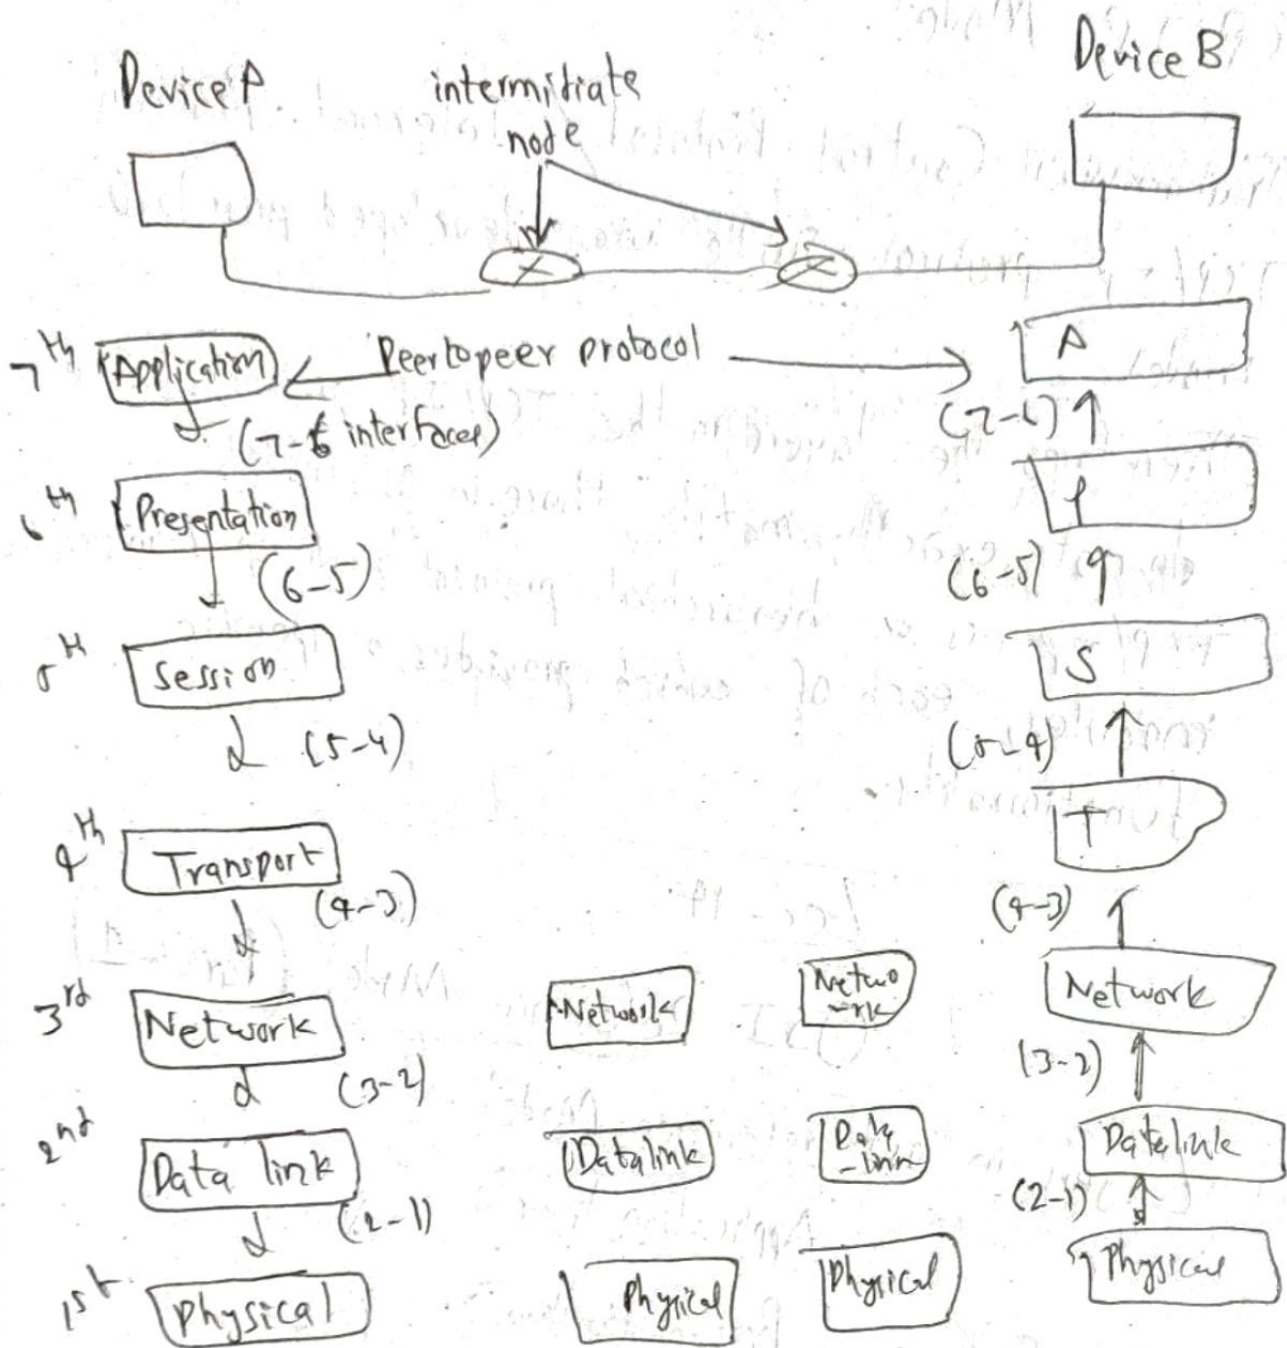 Device A
intermidiate
node
Device B
7th
Application
Peer to peer protocol
A
(7-6 interfaces)
(7-6)
6th
Presentation
P
(6-5)
(6-5)
5th
Session
S
(5-4)
(5-4)
4th
Transport
T
(4-3)
(4-3)
3rd
Network
Network
Netwo
-rk
Network
(3-2)
(3-2)
2nd
Data link
Datalink
Data
Datalink
(2-1)
(2-1)
1st
physical
physical
physical
physical